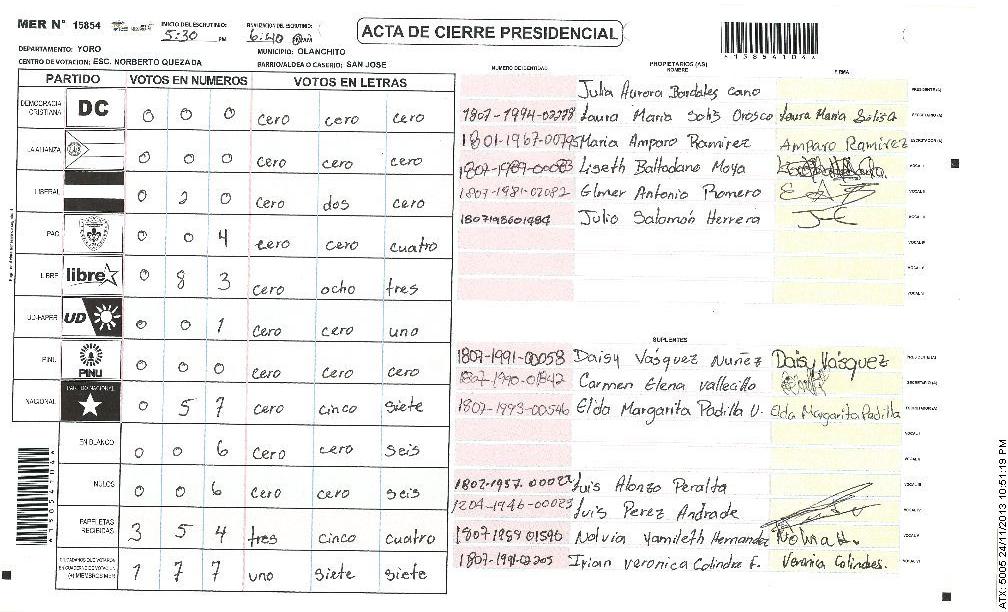 MER N° 15854 INICIO DEL ESCRUTINIO: 5:30 PM FINALIZACION DEL ESCRUTINIO: 6:40
ACTA DE CIERRE PRESIDENCIAL
DEPARTAMENTO: YORO MUNICIPIO: OLANCHITO
CENTRO DE VOTACION: ESC. NORBERTO QUEZADA BARRIO/ALDEA O CASERIO: SAN JOSE
PARTIDO VOTOS EN NUMEROS VOTOS EN LETRAS
DEMOCRACIA CRISTIANA DC 0 0 0 cero cero cero
LA ALIANZA 0 0 0 cero cero cero
LIBERAL 0 2 0 cero dos cero
PAC 0 0 4 cero cero cuatro
LIBRE libre 0 8 3 cero ocho tres
UD-FAPER UD 0 0 1 cero cero uno
PINU PINU 0 0 0 cero cero cero
NACIONAL PARTIDO NACIONAL 0 5 7 cero cinco siete
EN BLANCO 0 0 6 cero cero seis
NULOS 0 0 6 cero cero seis
PAPELETAS RECIBIDAS 3 5 4 tres cinco cuatro
CIUDADANOS QUE VOTARON EN CUADERNO DE VOTACION (+) MIEMBROS MER 1 7 7 uno siete siete
NUMERO DE IDENTIDAD PROPIETARIOS (AS) NOMBRE FIRMA
Julia Aurora Bardales cano PRESIDENTE(A)
1807-1994-02278 Laura Maria Solis Orosco Laura Maria Solisa SECRETARIO(A)
1801-1967-00795 Maria Amparo Ramirez Amparo Ramirez ESCRUTADOR(A)
1807-1989-00083 Liseth Baltodano Moya VOCAL I
1807-1981-02082 Elmer Antonio Romero VOCAL II
1807198601984 Julio Salomón Herrera VOCAL III
VOCAL IV
VOCAL V
VOCAL VI
SUPLENTES
1807-1991-00058 Daisy Vásquez Nuñez Daisy Vásquez PRESIDENTE(A)
1807-1990-01842 Carmen Elena Vallecillo SECRETARIO(A)
1807-1993-00546 Elda Margarita Padilla U. Elda Margarita Padilla ESCRUTADOR(A)
VOCAL I
VOCAL II
1802-1957-00022 Luis Alonzo Peralta VOCAL III
1204-1946-00023 Luis Perez Andrade VOCAL IV
1807 1959 01596 Nolvia Yamileth Hernandez VOCAL V
1807-1991-02205 Irian veronica Colindre F. Veronica Colindres. VOCAL VI
ATX: 5005 24/11/2013 10:51:19 PM